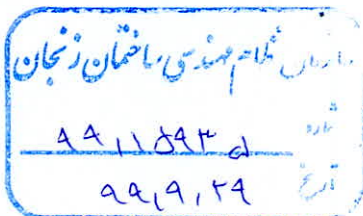 سازمان نظام مهندسی ساختمان زنجان
شماره ۹۹,۱۱۵۹۳
تاریخ ۹۹,۹,۲۹